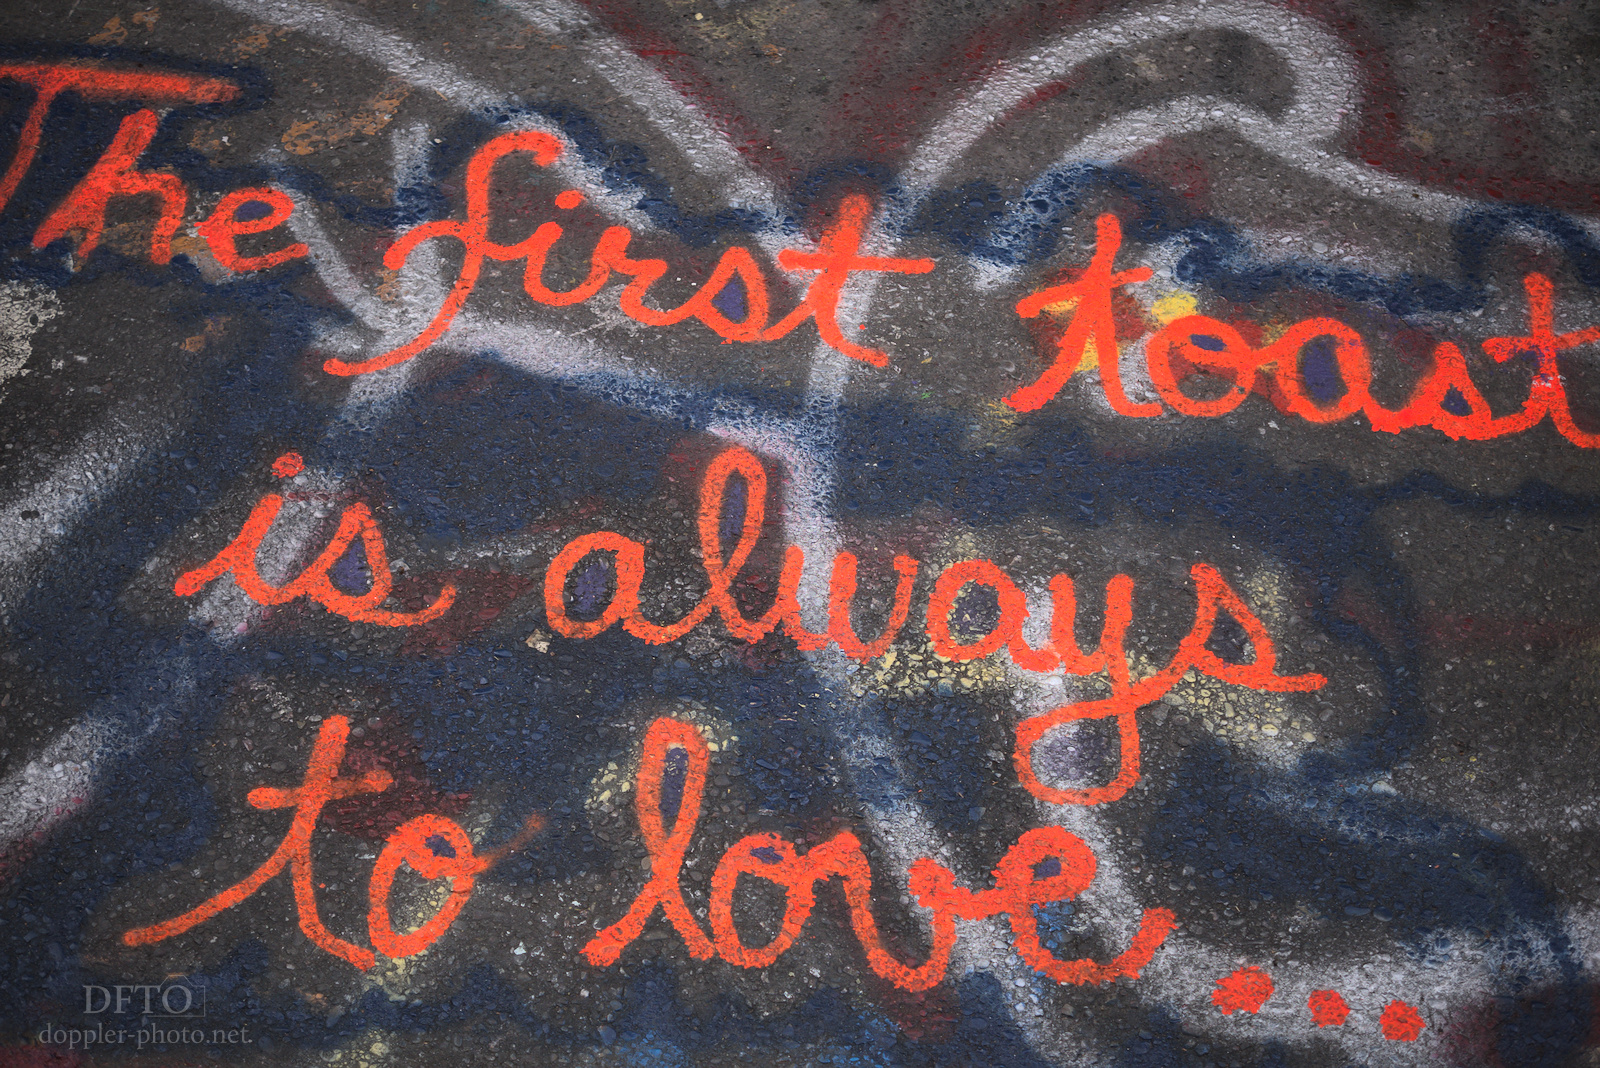 The first toast
is always
to love...
DFTO
doppler-photo.net